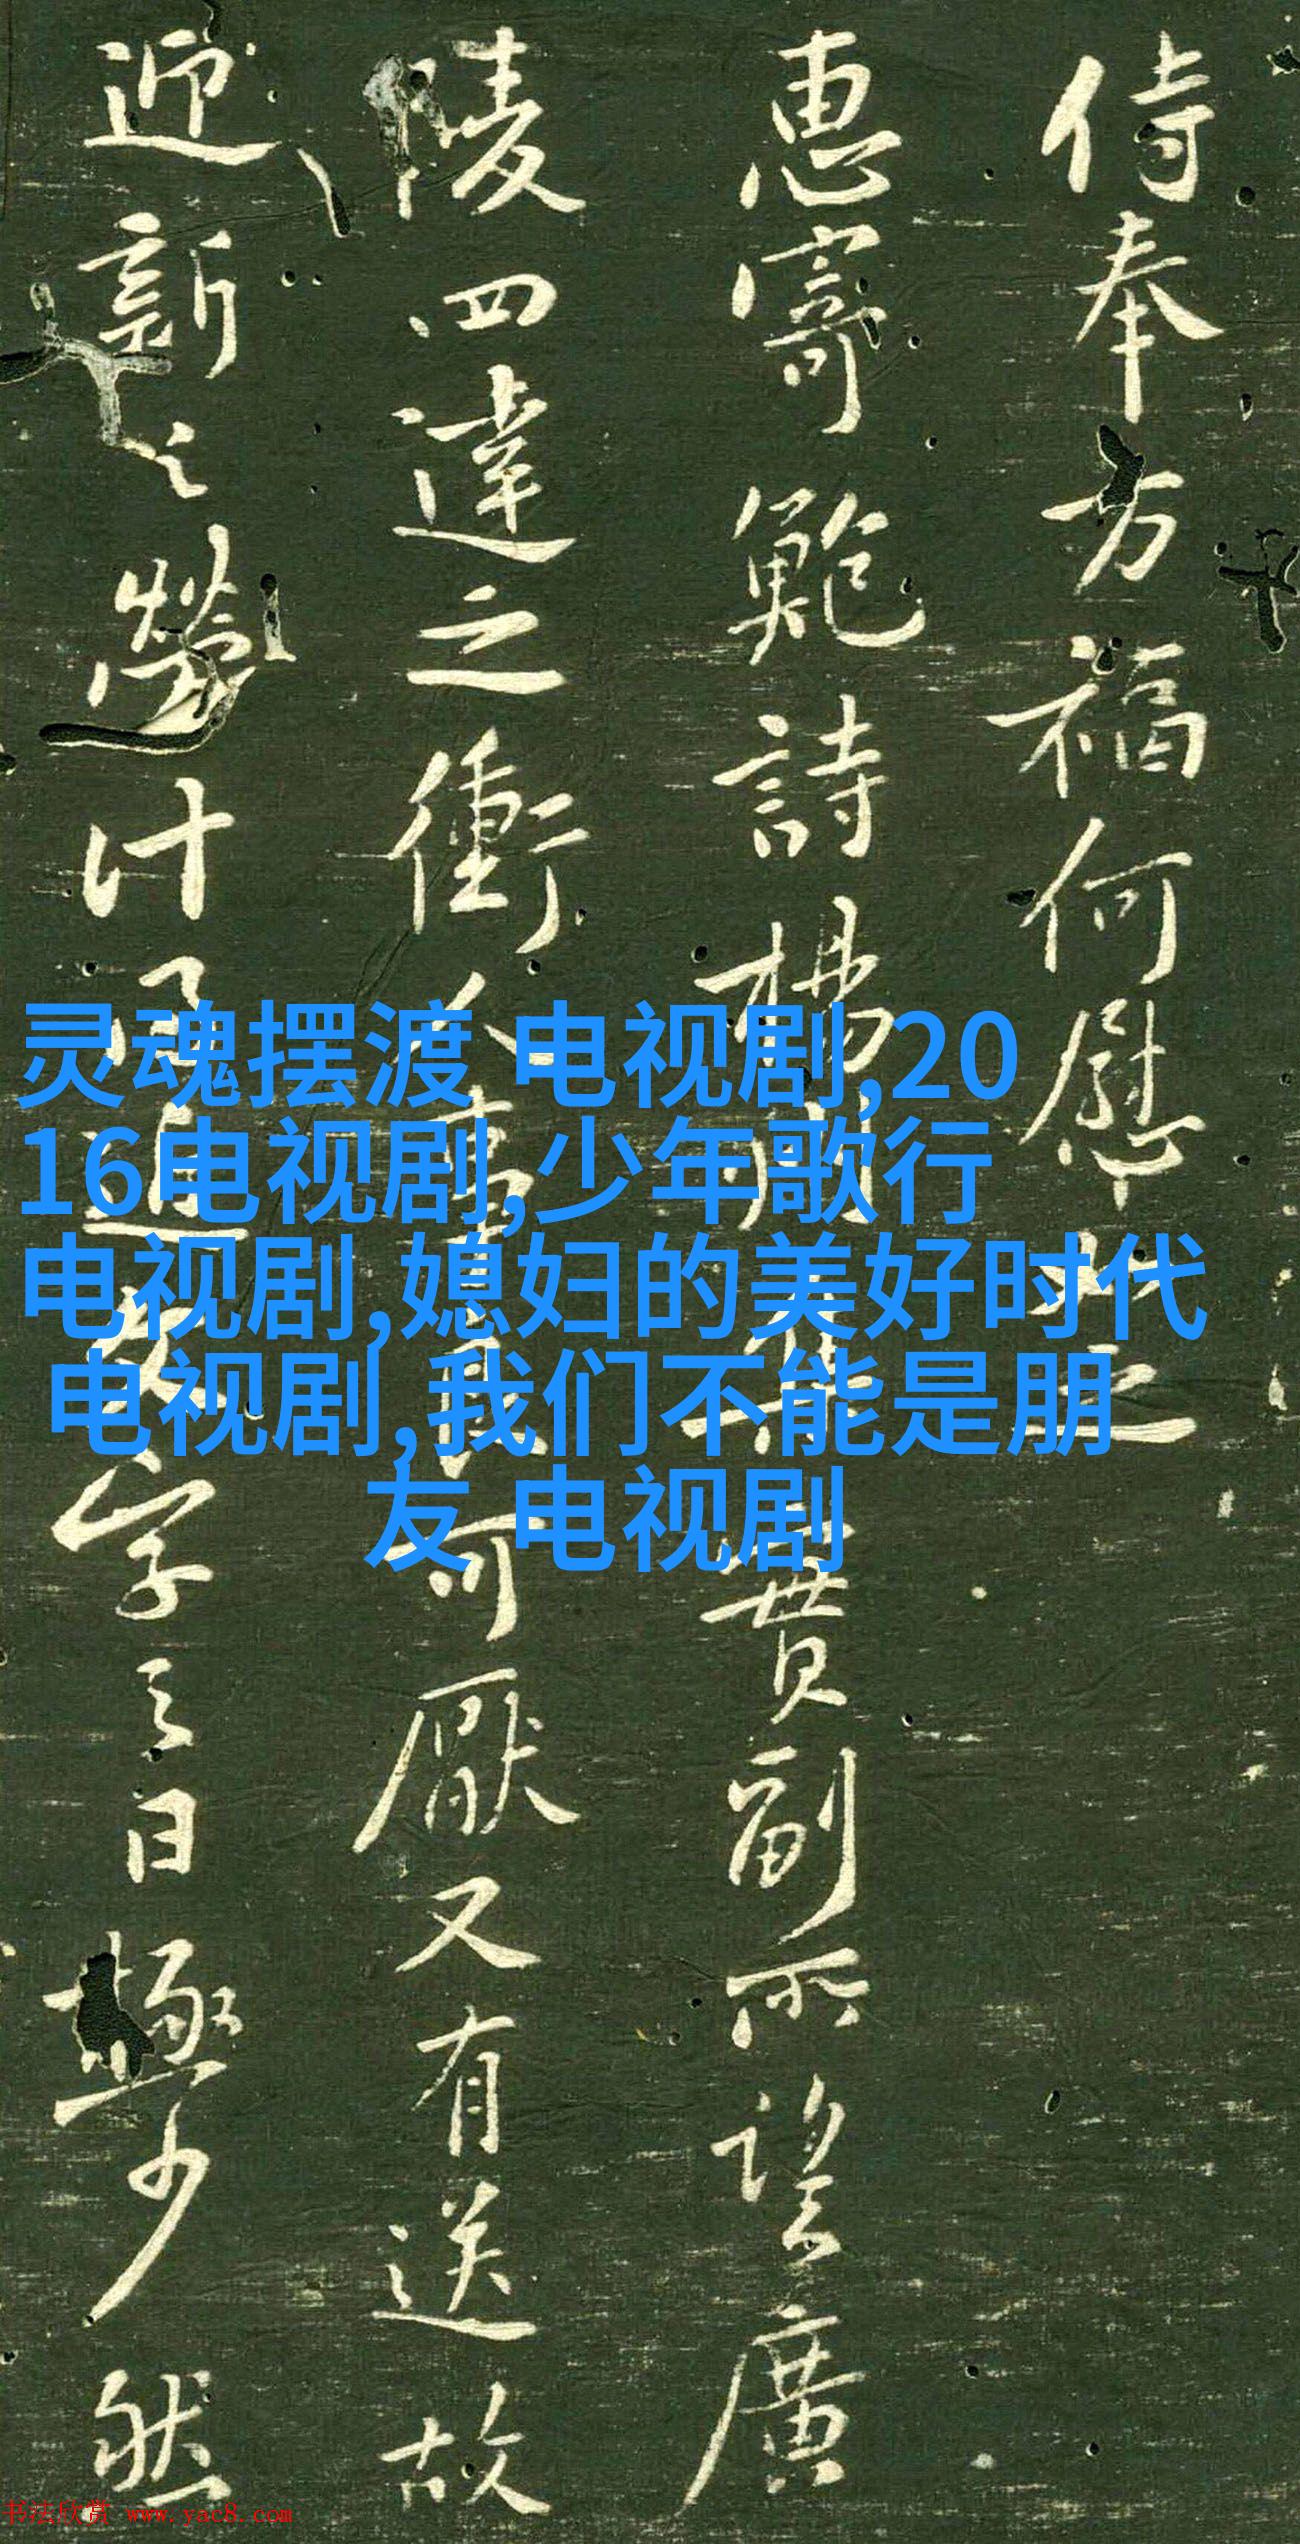 侍奉万福何慰如之
惠寄鮑詩楊實副所望廣
陵四達之衝人事可厭又有送故
迎新之勞計字之日極少然
灵魂摆渡 电视剧,20
16电视剧,少年歌行
电视剧,媳妇的美好时代
电视剧,我们不能是朋
友 电视剧
书法欣赏 www.yac8.com